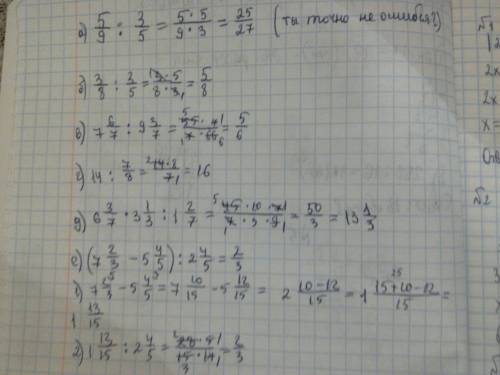 а) 5/9 : 3/5 = 5·5/9·3 = 25/27 (ты точно не ошибся?)
б) 3/8 : 3/5 = 3·5/8·3 = 5/8
в) 7 6/7 : 9 3/7 = 55·7/7·66 = 5/6
г) 14 : 7/8 = 14·8/7 = 16
д) 6 3/7 · 3 1/3 : 1 2/7 = 45·10·7/7·3·9 = 50/3 = 13 1/3
е) (7 2/3 - 5 4/5) : 2 4/5 = 2/3
1) 7 2/3 - 5 4/5 = 7 10/15 - 5 12/15 = 2 10-12/15 = 1 15+10-12/15 =
1 13/15
2) 1 13/15 : 2 4/5 = 28·5/15·14 = 2/3
№1
2x
2x
x=
№2